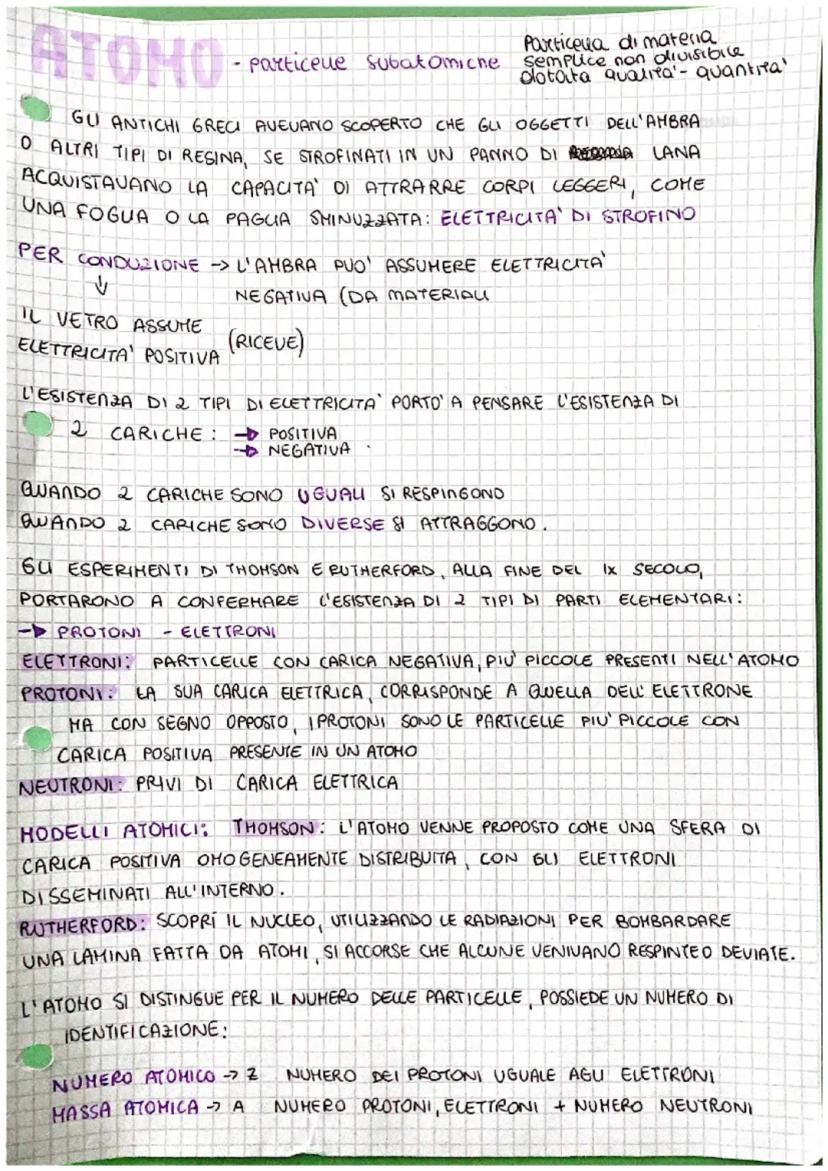 ATOMO - particelle subatomiche
Particella di materia
semplice non divisibile
dotata qualità - quantità
GLI ANTICHI GRECI AVEVANO SCOPERTO CHE GLI OGGETTI DELL'AMBRA
O ALTRI TIPI DI RESINA, SE STROFINATI IN UN PANNO DI LANA
ACQUISTAVANO LA CAPACITA' DI ATTRARRE CORPI LEGGERI, COME
UNA FOGLIA O LA PAGLIA SMINUZZATA: ELETTRICITA' DI STROFINO
PER CONDUZIONE -> L'AMBRA PUO' ASSUMERE ELETTRICITA'
↓ NEGATIVA (DA MATERIALI
IL VETRO ASSUME
ELETTRICITA' POSITIVA (RICEVE)
L'ESISTENZA DI 2 TIPI DI ELETTRICITA' PORTO' A PENSARE L'ESISTENZA DI
2 CARICHE: -> POSITIVA
-> NEGATIVA
QUANDO 2 CARICHE SONO UGUALI SI RESPINGONO
QUANDO 2 CARICHE SONO DIVERSE SI ATTRAGGONO.
GLI ESPERIMENTI DI THOMSON E RUTHERFORD, ALLA FINE DEL IX SECOLO,
PORTARONO A CONFERMARE L'ESISTENZA DI 2 TIPI DI PARTI ELEMENTARI:
-> PROTONI - ELETTRONI
ELETTRONI: PARTICELLE CON CARICA NEGATIVA, PIU' PICCOLE PRESENTI NELL'ATOMO
PROTONI: LA SUA CARICA ELETTRICA, CORRISPONDE A QUELLA DELL'ELETTRONE
MA CON SEGNO OPPOSTO, I PROTONI SONO LE PARTICELLE PIU' PICCOLE CON
CARICA POSITIVA PRESENTE IN UN ATOMO
NEUTRONI: PRIVI DI CARICA ELETTRICA
MODELLI ATOMICI: THOMSON: L'ATOMO VENNE PROPOSTO COME UNA SFERA DI
CARICA POSITIVA OMOGENEAMENTE DISTRIBUITA, CON GLI ELETTRONI
DISSEMINATI ALL'INTERNO.
RUTHERFORD: SCOPRÍ IL NUCLEO, UTILIZZANDO LE RADIAZIONI PER BOMBARDARE
UNA LAMINA FATTA DA ATOMI, SI ACCORSE CHE ALCUNE VENIVANO RESPINTE O DEVIATE.
L'ATOMO SI DISTINGUE PER IL NUMERO DELLE PARTICELLE, POSSIEDE UN NUMERO DI
IDENTIFICAZIONE:
NUMERO ATOMICO -> Z NUMERO DEI PROTONI UGUALE AGLI ELETTRONI
MASSA ATOMICA -> A NUMERO PROTONI, ELETTRONI + NUMERO NEUTRONI